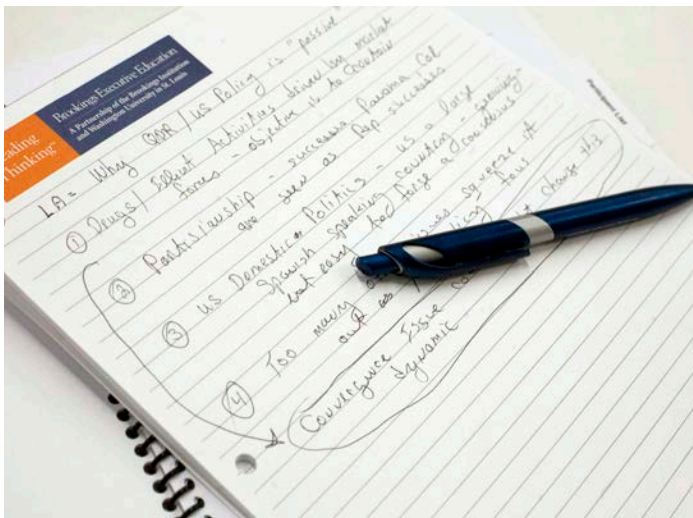 Brookings Executive Education
A Partnership of the Brookings Institution
and Washington University in St. Louis
Thinking"
Participant List
LA = Why QDR / US Policy is "passive"
① Drugs / Illicit Activities driven by market
forces - objective is to
② Partisanship - successes Panama Col
are seen as Rep successes
③ US Domestic Politics - US a large
Spanish speaking country - growing
not easy to forge a consensus
④ Too many issues squeeze it
out as policy
Convergence Issue change this
dynamic